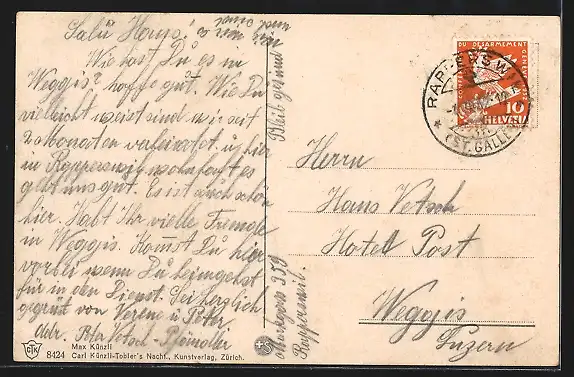 Salü Hans!
Wie hast Du es in
Weggis? hoffe gut. Wie Du
vielleicht weist sind wir seit
2 Monaten verheiratet u. hier
in Rapperswil wohnhaft es
geht uns gut. Es ist auch schön
hier. Habt Ihr viele Fremde
in Weggis. Komst Du hier
vorbei wenn Du heimgehst
für in den Dienst. Sei herzlich
gegrüst von Verene u. Peter
Adr. Peter Vetsch-
Bleib gesund
359
Rapperswil.
Herrn
Hans Vetsch
Hotel Post
Weggis
Luzern
DU DESARMEMENT
10
HELVETIA
RAPPERSWIL
(ST. GALLEN)
CTK
8424
Max Künzli
Carl Künzli-Tobler's Nachf., Kunstverlag, Zürich.